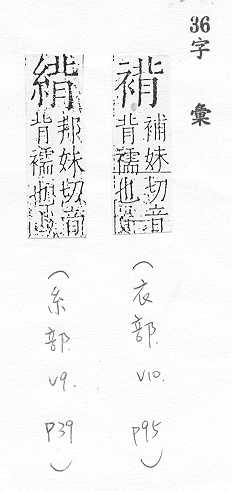 36
字彙
褙
補妹切音
背襦也
（衣部. V10. P95）
邦妹切音
背襦也
（糸部. V9. P39）